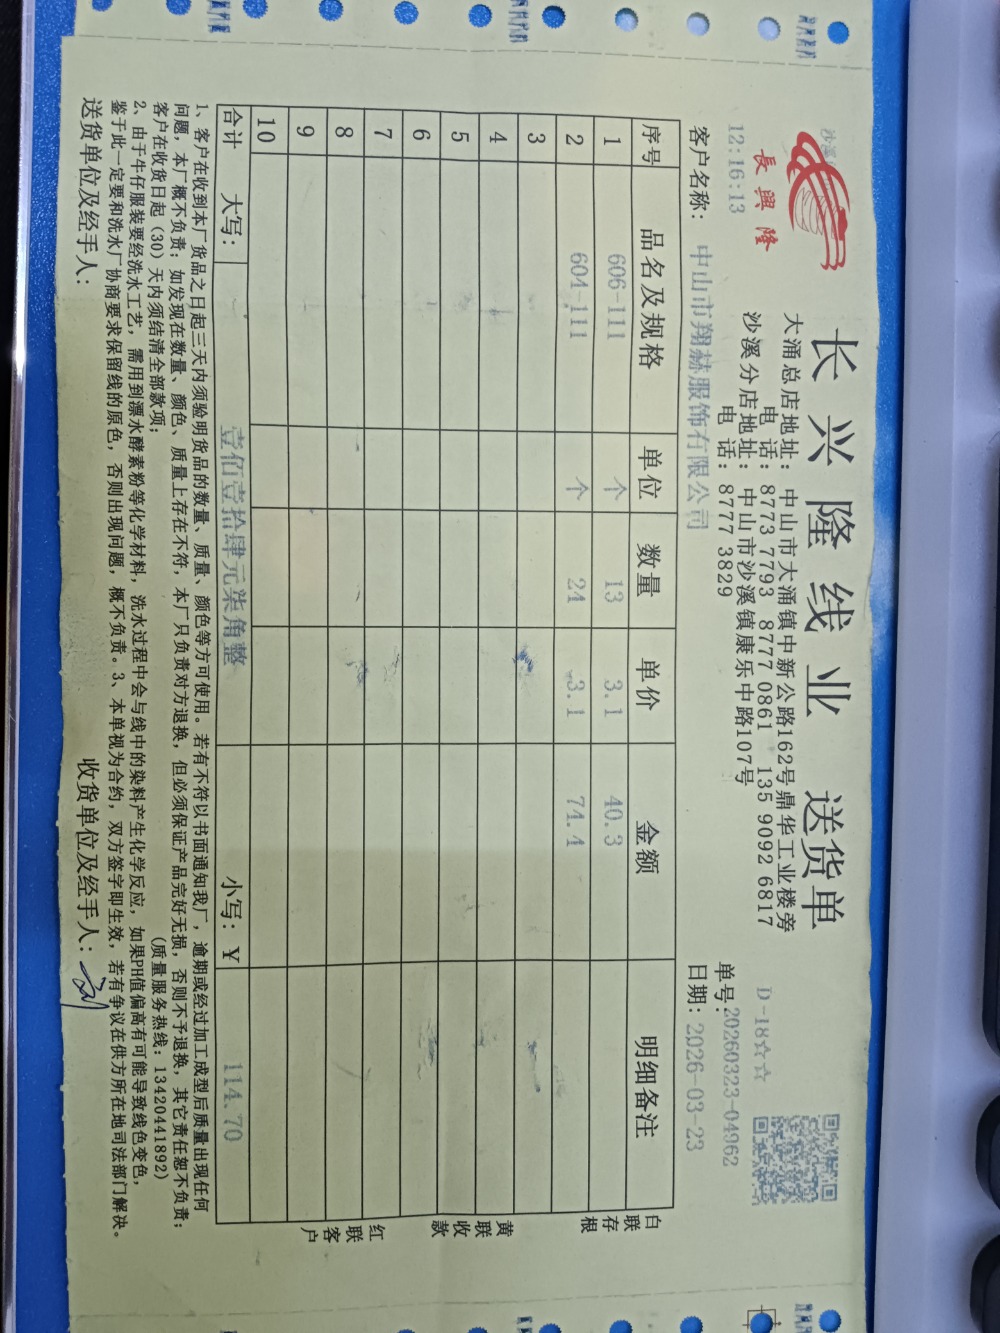 長興隆
长兴隆线业 送货单
大涌总店地址：中山市大涌镇中新公路162号鼎华工业楼旁
电 话：8773 7793 8777 0861 135 9092 6817
沙溪分店地址：中山市沙溪镇康乐中路107号
电 话：8777 3829
D-18☆☆
12:16:13
单号：20260323-04962
客户名称：中山市翔赫服饰有限公司
日期：2026-03-23
序号 品名及规格 单位 数量 单价 金额 明细备注
1 606-111 个 13 3.1 40.3
2 604-111 个 24 3.1 74.4
3
4
5
6
7
8
9
10
合计 大写： 壹佰壹拾肆元柒角整 小写：￥ 114.70
白联存根
黄联收款
红联客户
1、客户在收到本厂货品之日起三天内须验明货品的数量、质量、颜色等方可使用。若有不符以书面通知我厂，逾期或经过加工成型后质量出现任何
问题，本厂概不负责；如发现在数量、颜色、质量上存在不符，本厂只负责对方退换，但必须保证产品完好无损，否则不予退换，其它责任恕不负责；
客户在收货日起（30）天内须结清全部款项； (质量服务热线：13420441892)
2、由于牛仔服装要经洗水工艺，需用到漂水酵素粉等化学材料，洗水过程中会与线中的染料产生化学反应，如果PH值偏高有可能导致线色变色，
鉴于此一定要和洗水厂协商要求保留线的原色，否则出现问题，概不负责。3、本单视为合约，双方签字即生效，若有争议在供方所在地司法部门解决。
送货单位及经手人： 收货单位及经手人：